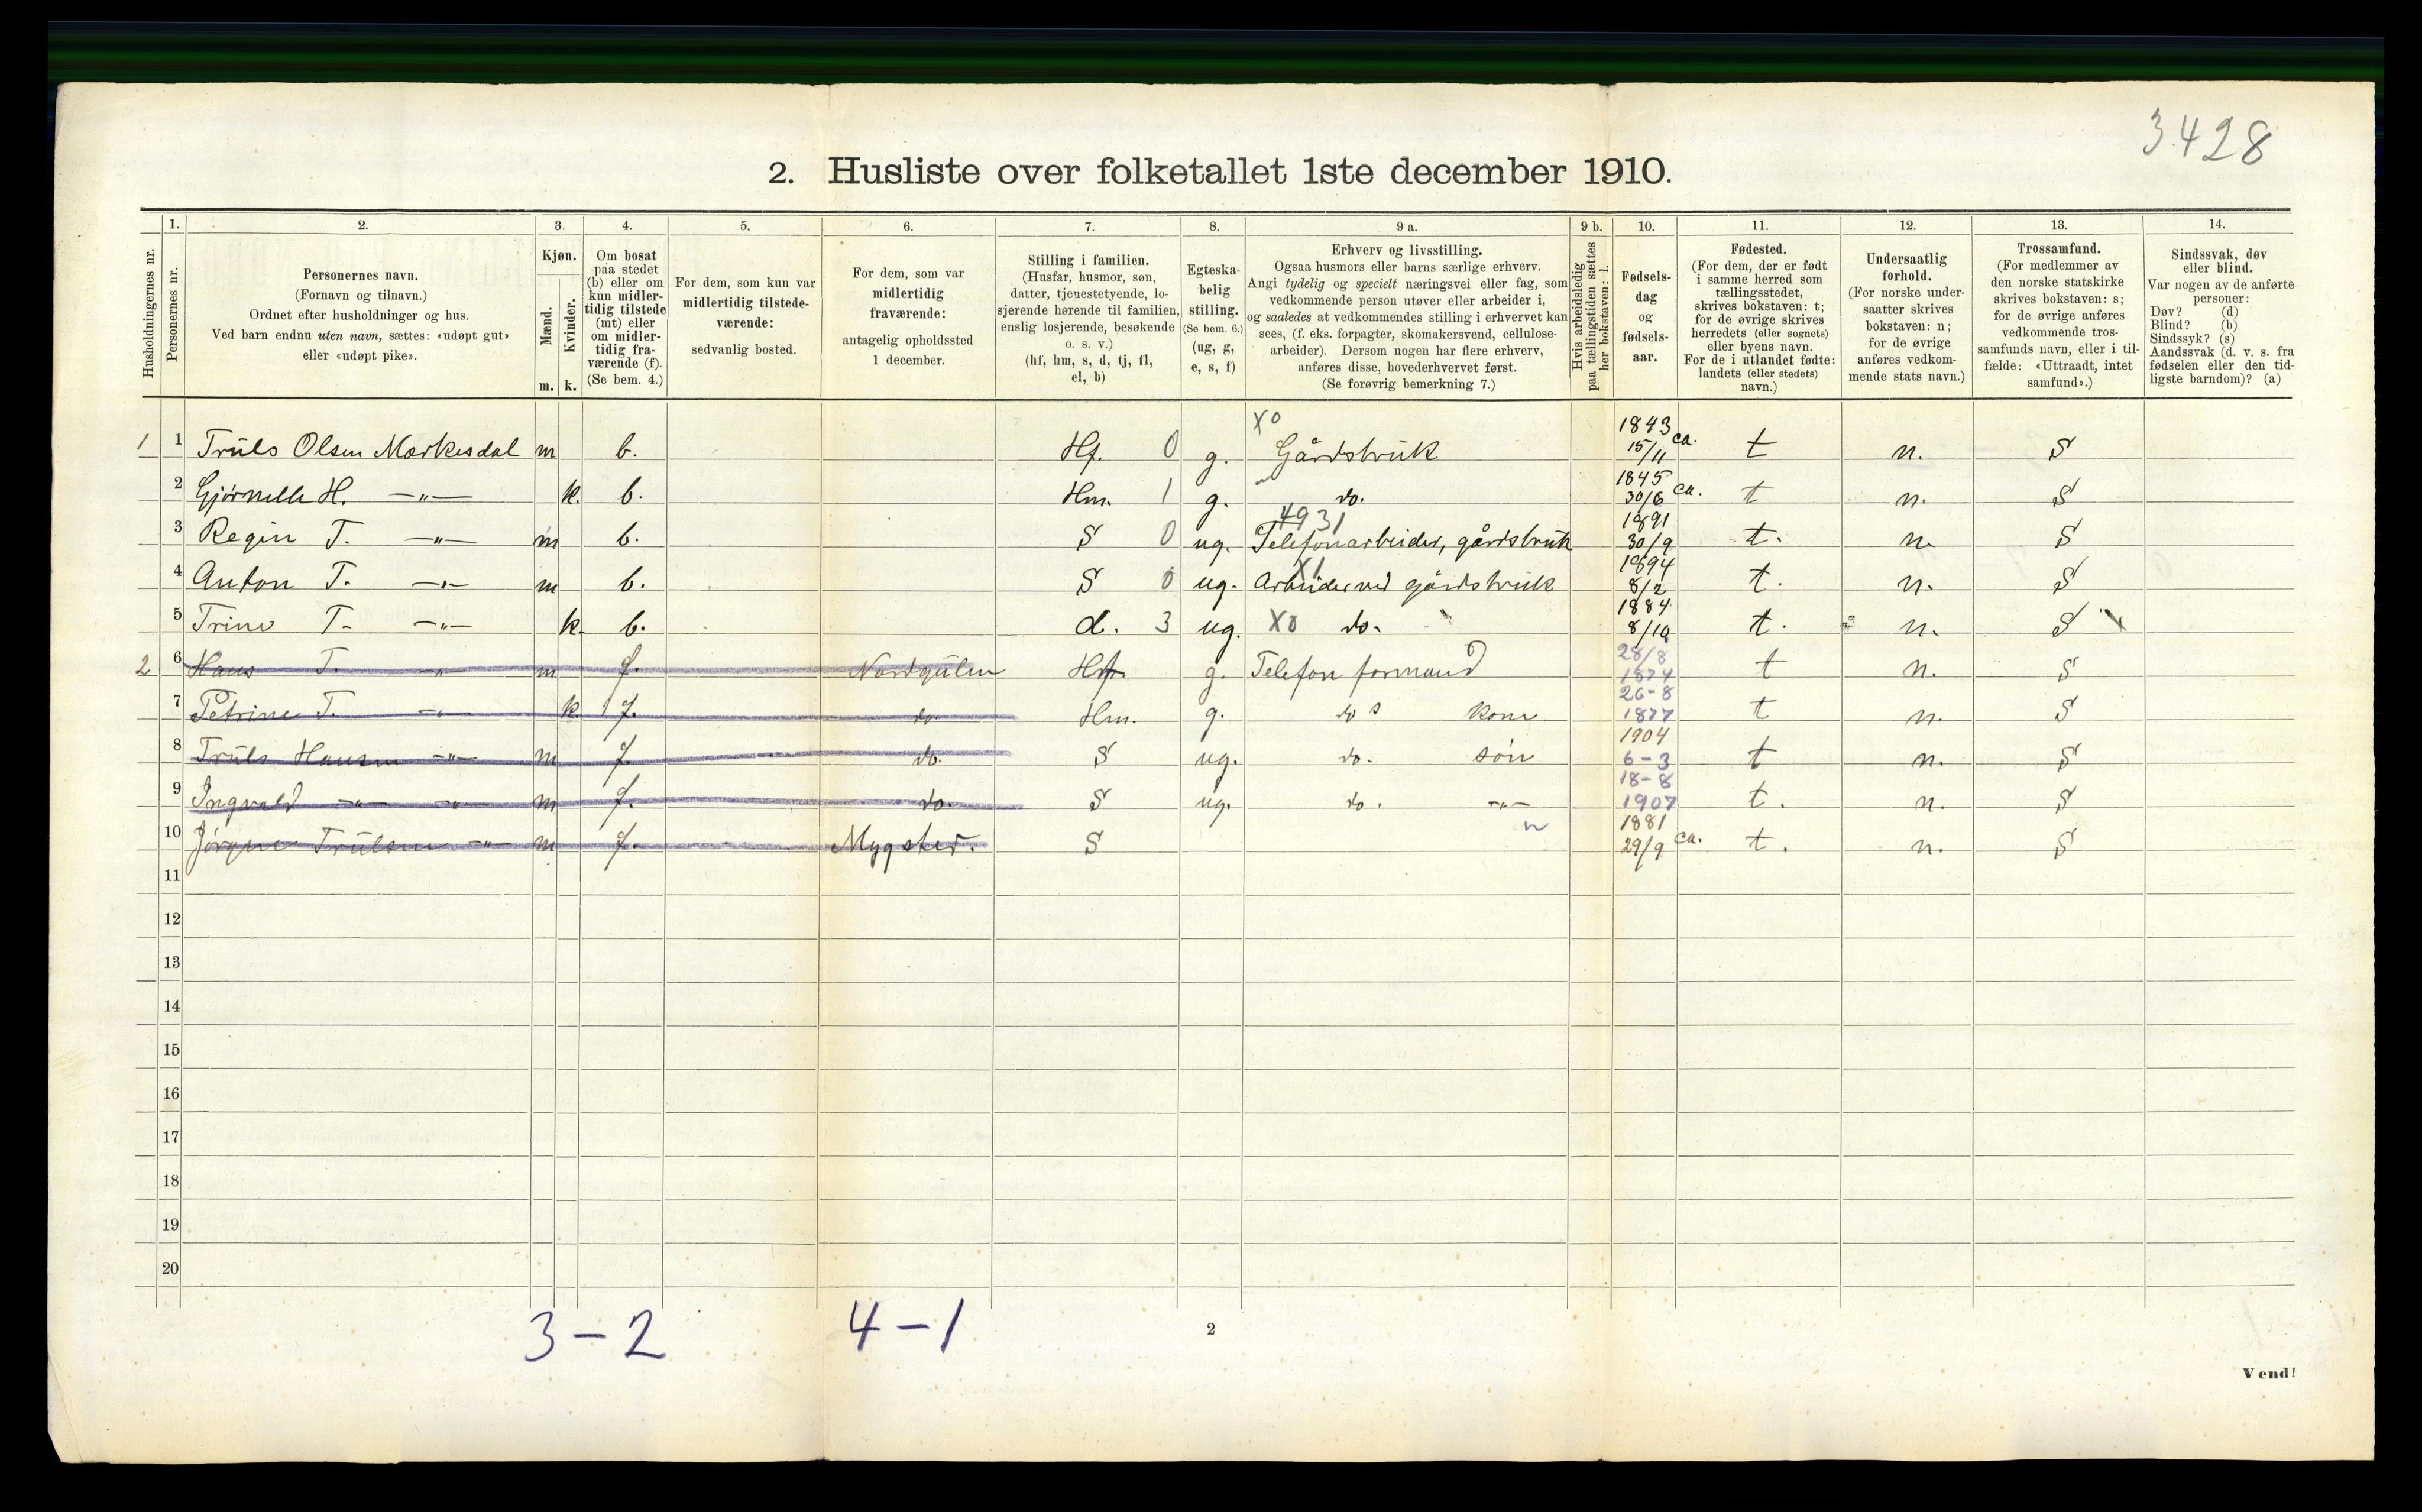 3428
2. Husliste over folketallet 1ste december 1910.
Husholdningernes nr.
1.
Personernes nr.
2.
Personernes navn.
(Fornavn og tilnavn.)
Ordnet efter husholdninger og hus.
Ved barn endnu uten navn, sættes: «udøpt gut»
eller «udøpt pike».
3.
Kjøn.
Mænd.
Kvinder.
m. k.
4.
Om bosat
paa stedet
(b) eller om
kun midler-
tidig tilstede
(mt) eller
om midler-
tidig fra-
værende (f).
(Se bem. 4.)
5.
For dem, som kun var
midlertidig tilstede-
værende:
sedvanlig bosted.
6.
For dem, som var
midlertidig
fraværende:
antagelig opholdssted
1 december.
7.
Stilling i familien.
(Husfar, husmor, søn,
datter, tjenestetyende, lo-
sjerende hørende til familien,
enslig losjerende, besøkende
o. s. v.)
(hf, hm, s, d, tj, fl,
el, b)
8.
Egteska-
belig
stilling.
(Se bem. 6.)
(ug, g,
e, s, f)
9 a.
Erhverv og livsstilling.
Ogsaa husmors eller barns særlige erhverv.
Angi tydelig og specielt næringsvei eller fag, som
vedkommende person utøver eller arbeider i,
og saaledes at vedkommendes stilling i erhvervet kan
sees, (f. eks. forpagter, skomakersvend, cellulose-
arbeider). Dersom nogen har flere erhverv,
anføres disse, hovederhvervet først.
(Se forøvrig bemerkning 7.)
9 b.
Hvis arbeidsledig
paa tællingstiden sættes
her bokstaven: l.
10.
Fødsels-
dag
og
fødsels-
aar.
11.
Fødested.
(For dem, der er født
i samme herred som
tællingsstedet,
skrives bokstaven: t;
for de øvrige skrives
herredets (eller sognets)
eller byens navn.
For de i utlandet fødte:
landets (eller stedets)
navn.)
12.
Undersaatlig
forhold.
(For norske under-
saatter skrives
bokstaven: n;
for de øvrige
anføres vedkom-
mende stats navn.)
13.
Trossamfund.
(For medlemmer av
den norske statskirke
skrives bokstaven: s;
for de øvrige anføres
vedkommende tros-
samfunds navn, eller i til-
fælde: «Uttraadt, intet
samfund».)
14.
Sindssvak, døv
eller blind.
Var nogen av de anførte
personer:
Døv? (d)
Blind? (b)
Sindssyk? (s)
Aandssvak (d. v. s. fra
fødselen eller den tid-
ligste barndom)? (a)
1 1 Truls Olsen Markesdal m b. Hf. 0 g. X0 Gårdsbruk 1843 15/11 ca. t n. S
2 Gjørnelle H. —"— k. b. Hm. 1 g. do. 1845 30/6 ca. t n. S
3 Regin T. —"— m b. S 0 ug. 4931 Telefonarbeider, gårdsbruk 1891 30/9 t. n. S
4 Anton T. —"— m b. S 0 ug. X1 Arbeider ved gårdsbruk 1894 8/2 t. n. S
5 Trine T. —"— k. b. d. 3 ug. X0 do. 1884 8/10 t. n. S
2 6 Hans T. " m f. Nordgulen Hf. g. Telefon formand 28/8 1874 t n. S
7 Petrine T. —"— k. f. do. Hm. g. do s kone 26-8 1877 t n. S
8 Truls Hansen —"— m f. do. S ug. do. søn 1904 6-3 t n. S
9 Ingvald —"— —"— m f. do. S ug. do. —"— 18-8 1907 t. n. S
10 Jørgen Trulsen —"— m f. Mygster. S 1881 29/9 ca. t. n. S
11
12
13
14
15
16
17
18
19
20
3-2 4-1
2
Vend!